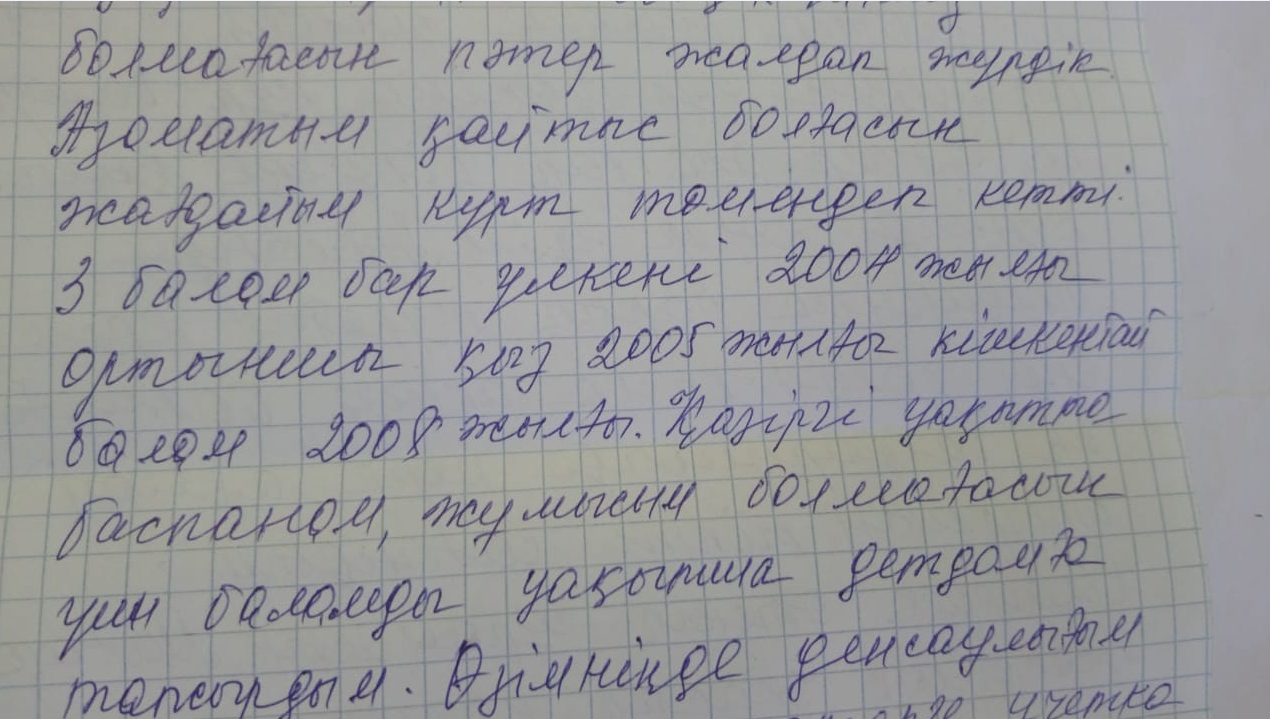 болмағасын пәтер жалдап жүрдік.
Азаматым қайтыс болғасын
жағдайым күрт төмендеп кетті.
3 балам бар үлкені 2004 жылғы
ортыншы қыз 2005 жылғы кішкентай
балам 2008 жылғы. Қазіргі уақытта
баспанам, жұмысым болмағасын
үшін баламды уақытша детдомға
тапсырдым. Өзімніңде денсаулығым
учетка